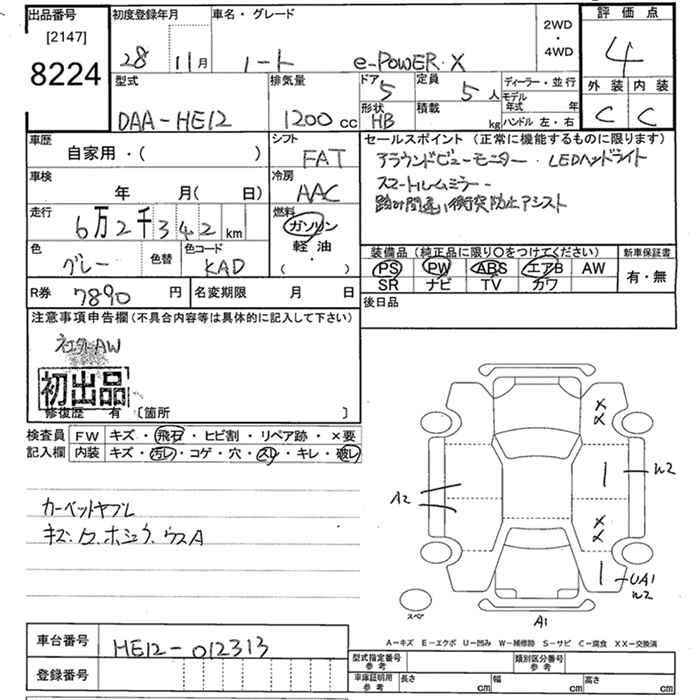 出品番号
[2147]
8224
初度登録年月
28 11月
車名・グレード
ノート e-POWER・X
2WD
・
4WD
評価点
4
型式
DAA-HE12
排気量
1200cc
ドア
5
定員
5人
ディーラー・並行
モデル年式 年
形状
HB
積載
kg
ハンドル 左・右
外装 内装
C C
車歴
自家用・( )
シフト
FAT
セールスポイント (正常に機能するものに限ります)
アラウンドビューモニター ・ LEDヘッドライト
スマートルームミラー
踏み間違い衝突防止アシスト
車検
年 月( 日)
冷房
AAC
走行
6万2千342km
燃料
ガソリン
軽油
( ・ )
色
グレー
色替
色コード
KAD
装備品 (純正品に限り〇をつけてください)
PS PW ABS エアB AW
SR ナビ TV カワ
新車保証書
有・無
R券 7890円
名変期限 月 日
後日品
注意事項申告欄(不具合内容等は具体的に記入して下さい)
AW
初出品
修復歴 有 〔箇所 〕
検査員記入欄
FW キズ・飛石・ヒビ割・リペア跡・×要
内装 キズ・汚レ・コゲ・穴・スレ・キレ・破レ
カーペットヤブレ
A2
XX
W2
XX
UA1
W2
A1
スペア
A-キズ E-エクボ U-凹み W-補修跡 S-サビ C-腐食 XX-交換済
車台番号 HE12-012313
登録番号
型式指定番号 参考
類別区分番号 参考
車庫証明用 参考
長さ cm 幅 cm 高さ cm